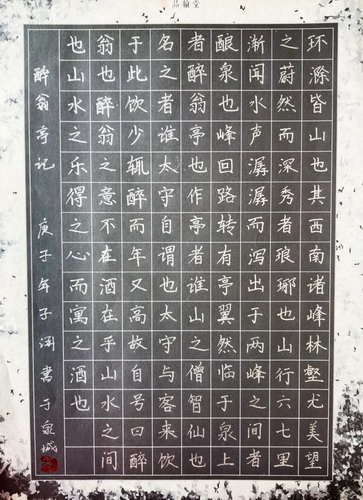 品翰堂
环滁皆山也其西南诸峰林壑尤美望
之蔚然而深秀者琅琊也山行六七里
渐闻水声潺潺而泻出于两峰之间者
酿泉也峰回路转有亭翼然临于泉上
者醉翁亭也作亭者谁山之僧智仙也
名之者谁太守自谓也太守与客来饮
于此饮少辄醉而年又高故自号曰醉
翁也醉翁之意不在酒在乎山水之间
也山水之乐得之心而寓之酒也
醉翁亭记 庚子年子涵书于泉城